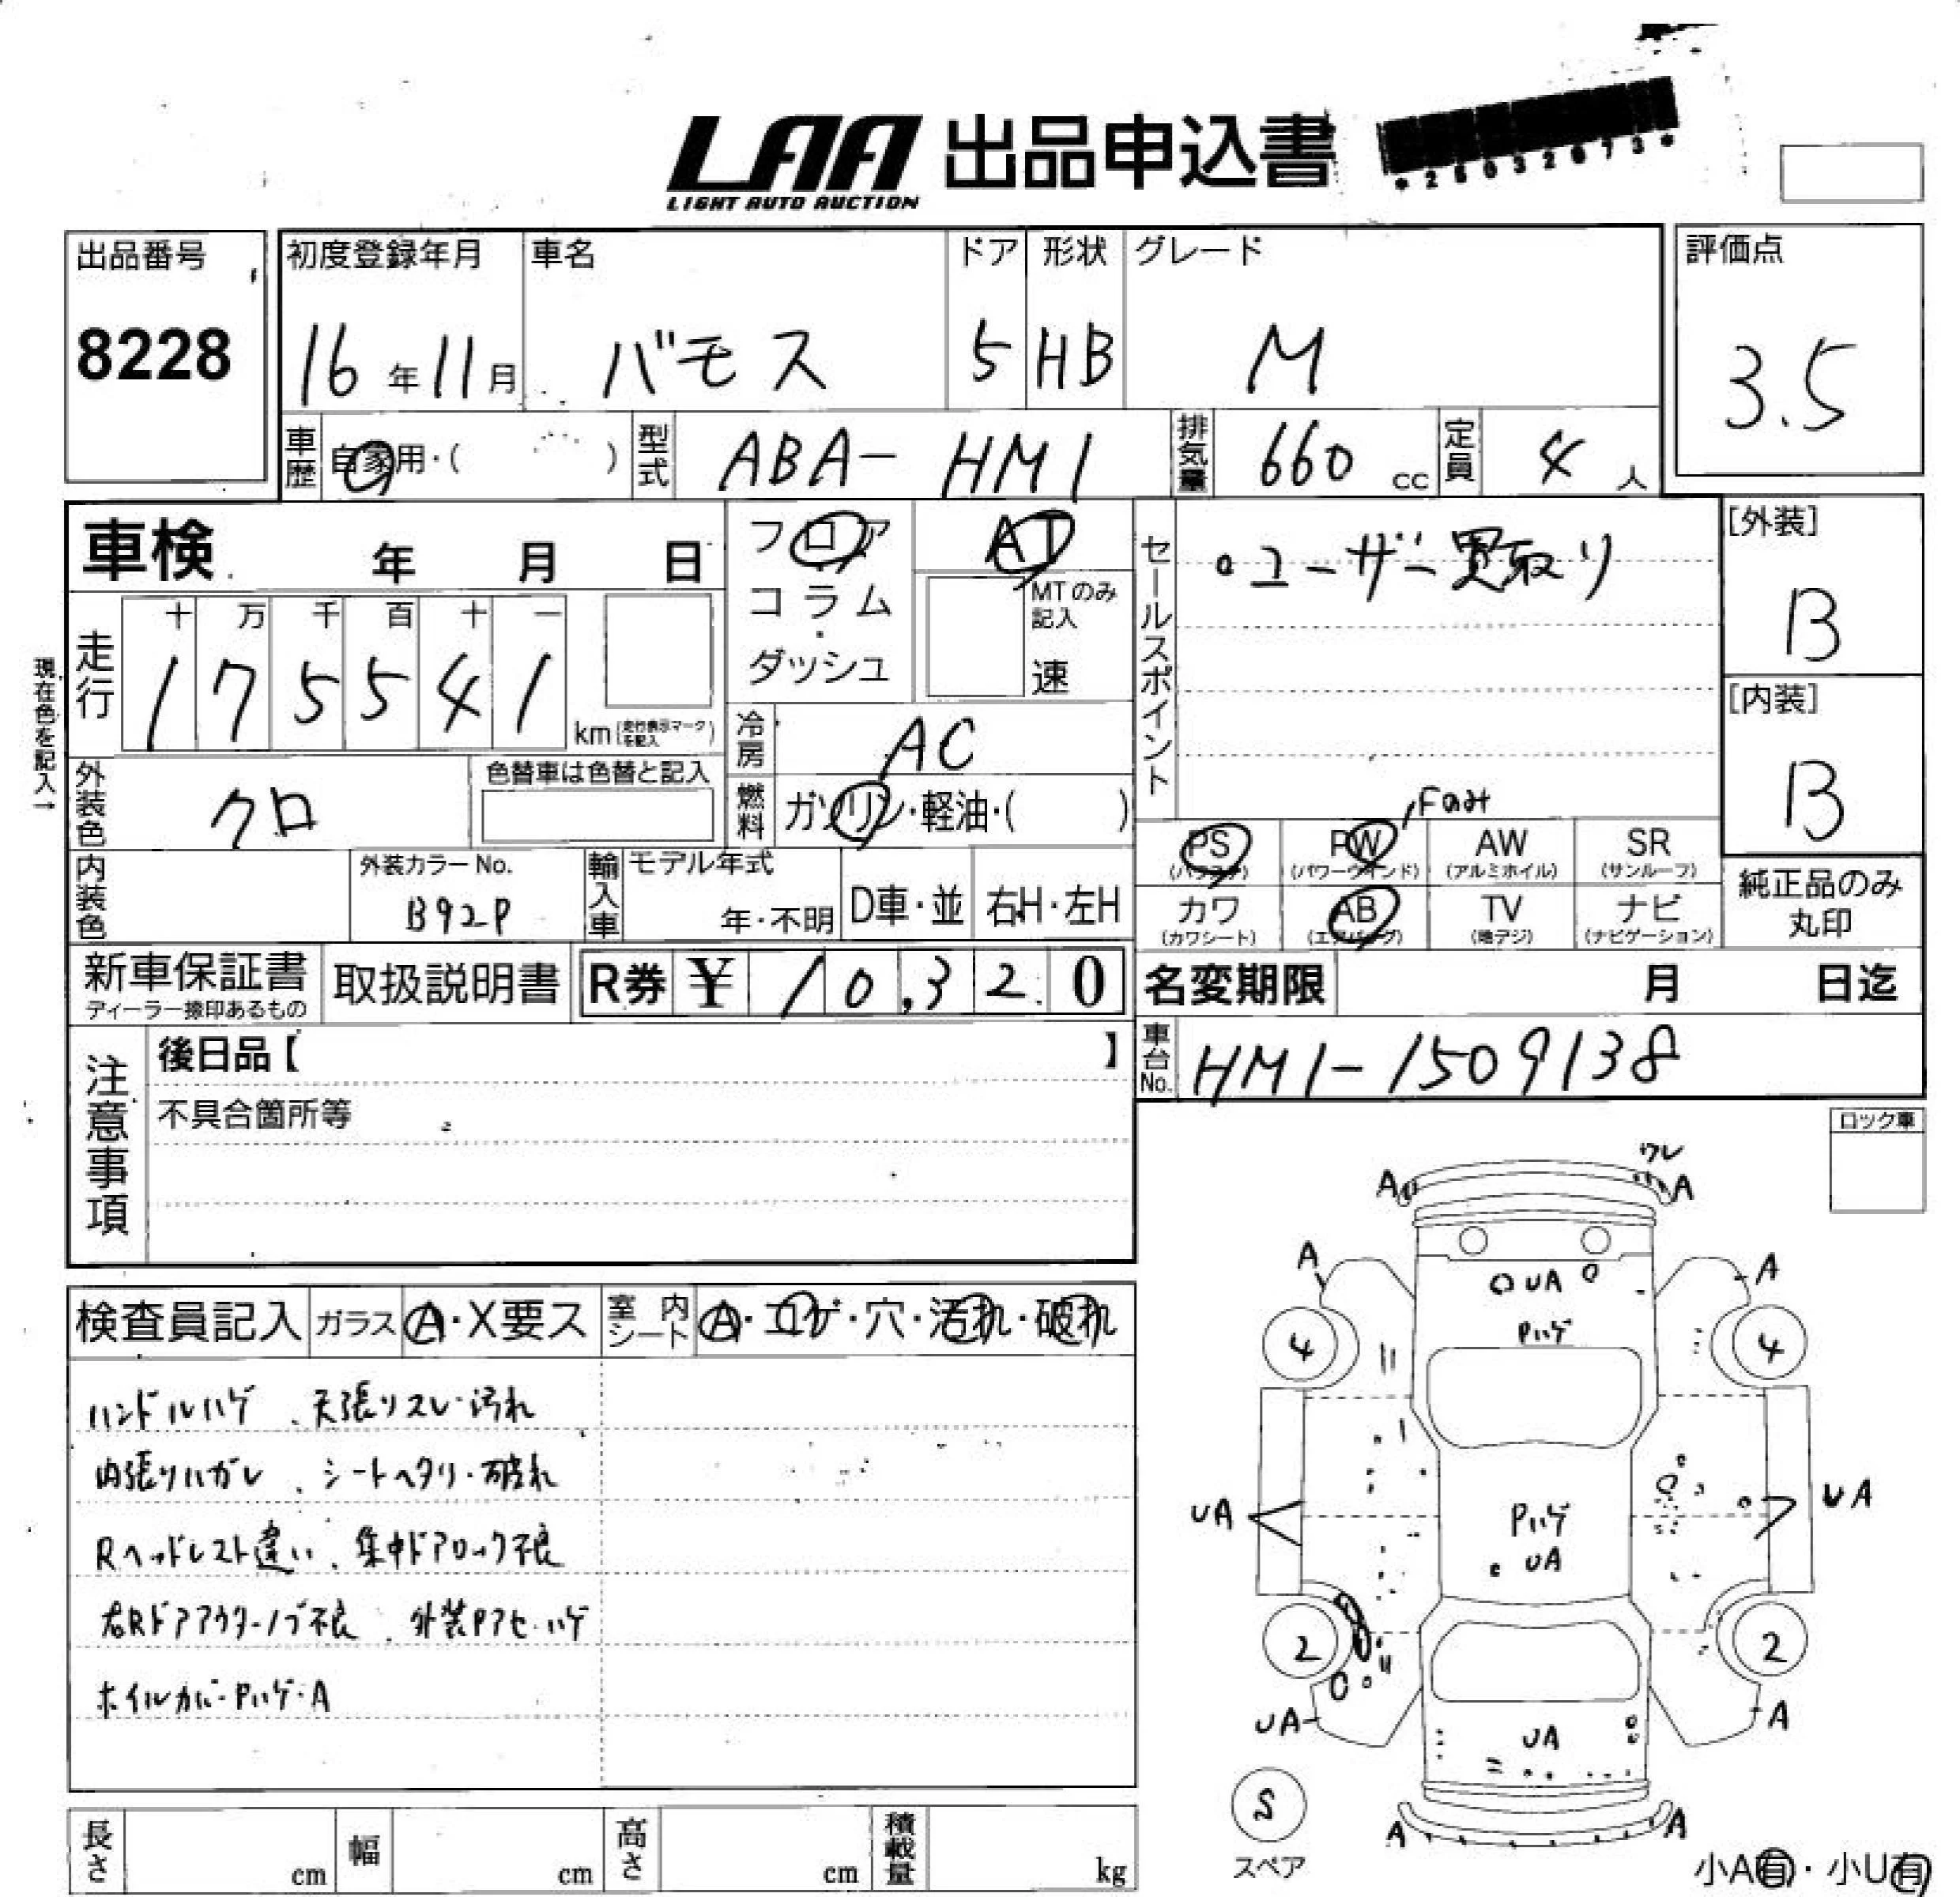 LAA 出品申込書
LIGHT AUTO AUCTION
出品番号
8228
初度登録年月
16年11月
車名
バモス
ドア
5
形状
HB
グレード
M
評価点
3.5
車歴
自家用・( )
型式
ABA-HM1
排気量
660 cc
定員
4 人
車検 年 月 日
フロア
コラム
・
ダッシュ
AT
MTのみ
記入
速
セールスポイント
・ユーザー買取り
[外装]
B
[内装]
B
現在色を記入→
走行
十 万 千 百 十 一
1 7 5 5 4 1
km(走行表示マークを記入)
冷房
AC
燃料
ガソリン・軽油・( )
外装色
クロ
色替車は色替と記入
内装色
外装カラーNo.
B92P
輸入車
モデル年式
年・不明
D車・並
右H・左H
,Fのみ
PS
(パワステ)
PW
(パワーウインド)
AW
(アルミホイル)
SR
(サンルーフ)
カワ
(カワシート)
AB
(エアバッグ)
TV
(地デジ)
ナビ
(ナビゲーション)
純正品のみ
丸印
新車保証書
ディーラー捺印あるもの
取扱説明書
R券 ¥ 10,320
名変期限 月 日迄
車台No.
HM1-1509138
注意事項
後日品【 】
不具合箇所等
ロック車
検査員記入
ガラス
A・X要ス
室内
シート
A・コゲ・穴・汚れ・破れ
ハンドルハゲ、天張りスレ・汚れ
内張りハガレ、シートヘタリ・破れ
Rヘッドレスト違い、集中ドアロック不良
右Rドアアウターノブ不良、外装Pアセ・ハゲ
ホイルカバーPハゲ・A
ワレ
A A
A A
UA
Pハゲ
4 4
UA UA
Pハゲ
UA
2 2
UA A
UA
S
スペア
A A
小A有・小U有
長さ cm
幅 cm
高さ cm
積載量 kg